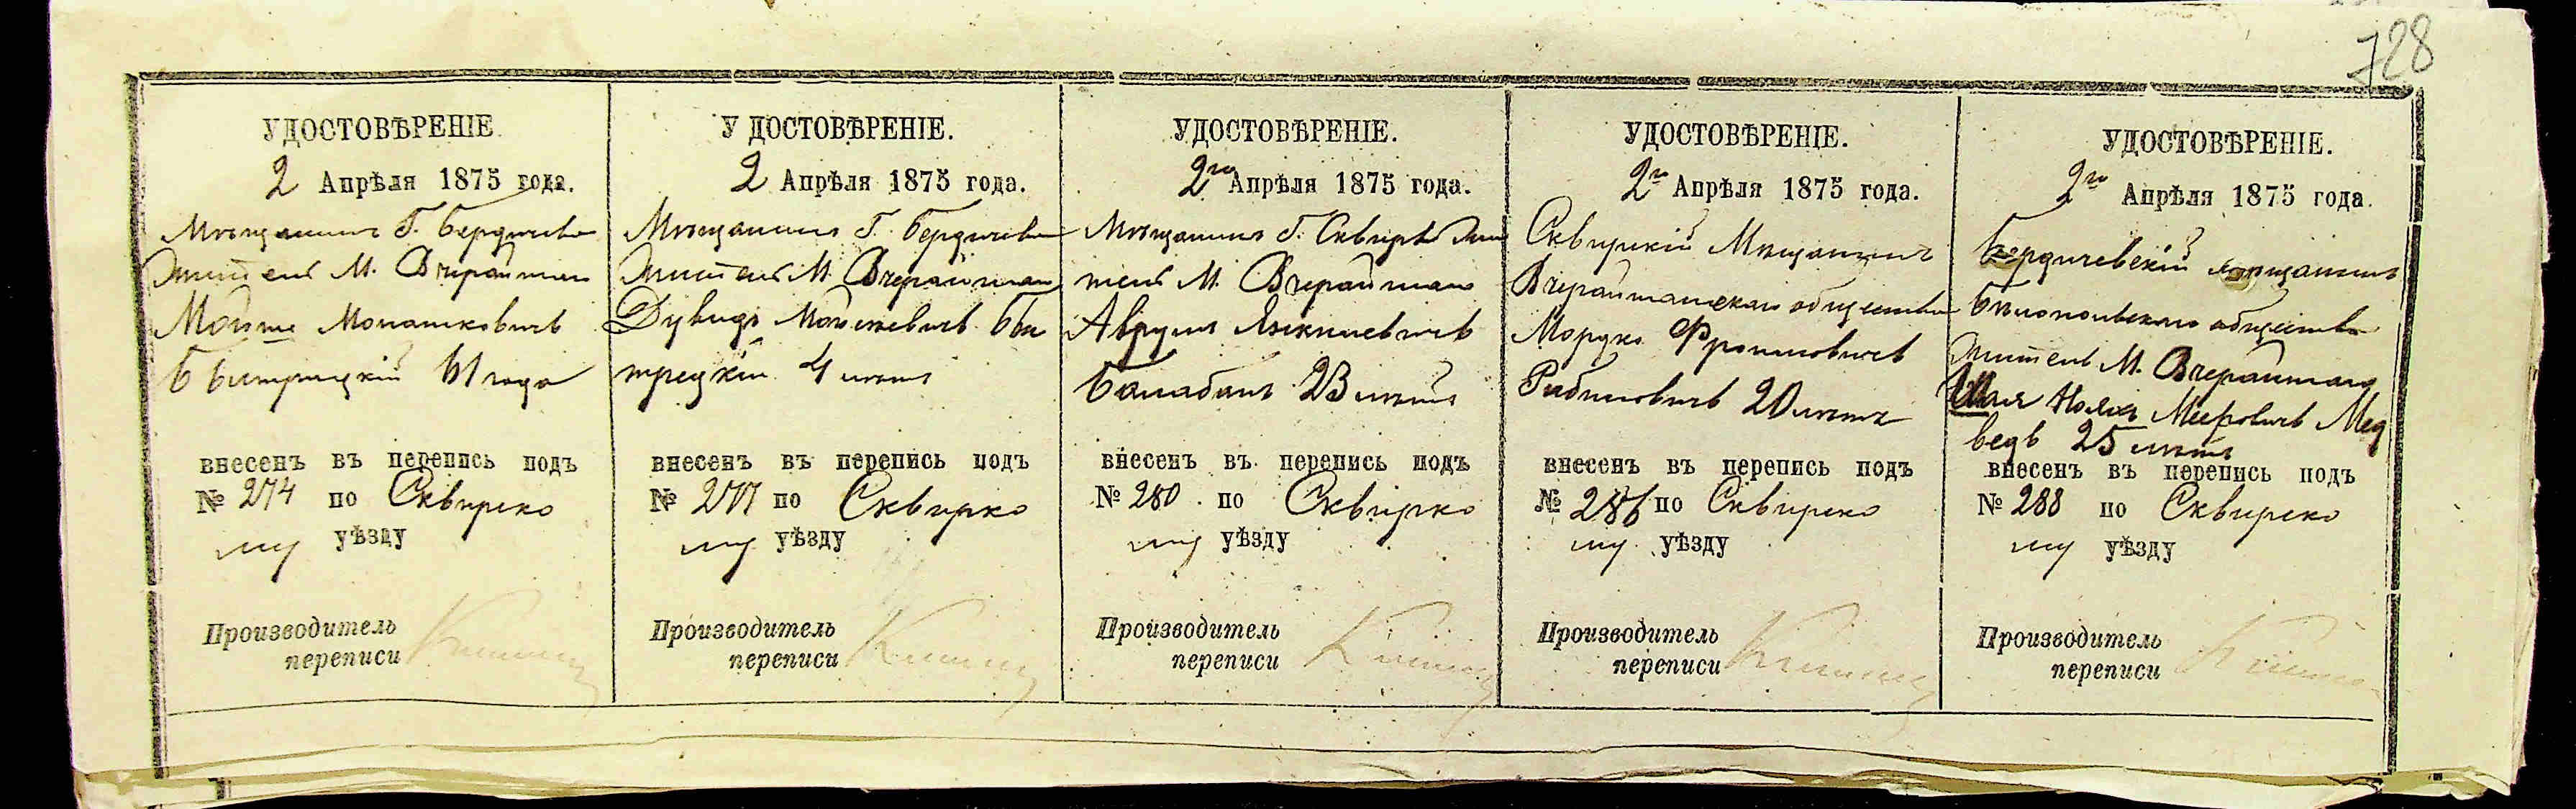 728
УДОСТОВѢРЕНІЕ
2 Апрѣля 1875 года.
Мѣщанинъ Г. Бердичева
житель М. Вчерайшаго
Мойше Монашковичъ
Быстрицкій 61 года
внесенъ въ перепись подъ
№ 274 по Сквирско
му уѣзду
Производитель
переписи
УДОСТОВѢРЕНІЕ.
2 Апрѣля 1875 года.
Мѣщанинъ Г. Бердичева
житель М. Вчерайшаго
Дувидъ Мойшевичъ Бы
стрецкій 4 лѣтъ
внесенъ въ перепись подъ
№ 277 по Сквирко
му уѣзду
Производитель
переписи
УДОСТОВѢРЕНІЕ.
2го Апрѣля 1875 года.
Мѣщанинъ Г. Сквира жи
тель М. Вчерайшаго
Аврумъ
Балабанъ 23 лѣтъ
внесенъ въ перепись подъ
№ 280 по Сквирко
му уѣзду
Производитель
переписи
УДОСТОВѢРЕНІЕ.
2го Апрѣля 1875 года.
Сквирскій Мѣщанинъ
Вчерайшанскаго общества
Мордко Фроимовичъ
Рабиновичъ 20 лѣтъ
внесенъ въ перепись подъ
№ 286 по Сквирско
му уѣзду
Производитель
переписи
УДОСТОВѢРЕНІЕ.
2го Апрѣля 1875 года.
Бердичевскій мѣщанинъ
Бѣлопольскаго общества
житель М. Вчерайшаго
Шая Мееровичъ Мед
ведь 25 лѣтъ
внесенъ въ перепись подъ
№ 288 по Сквирско
му уѣзду
Производитель
переписи